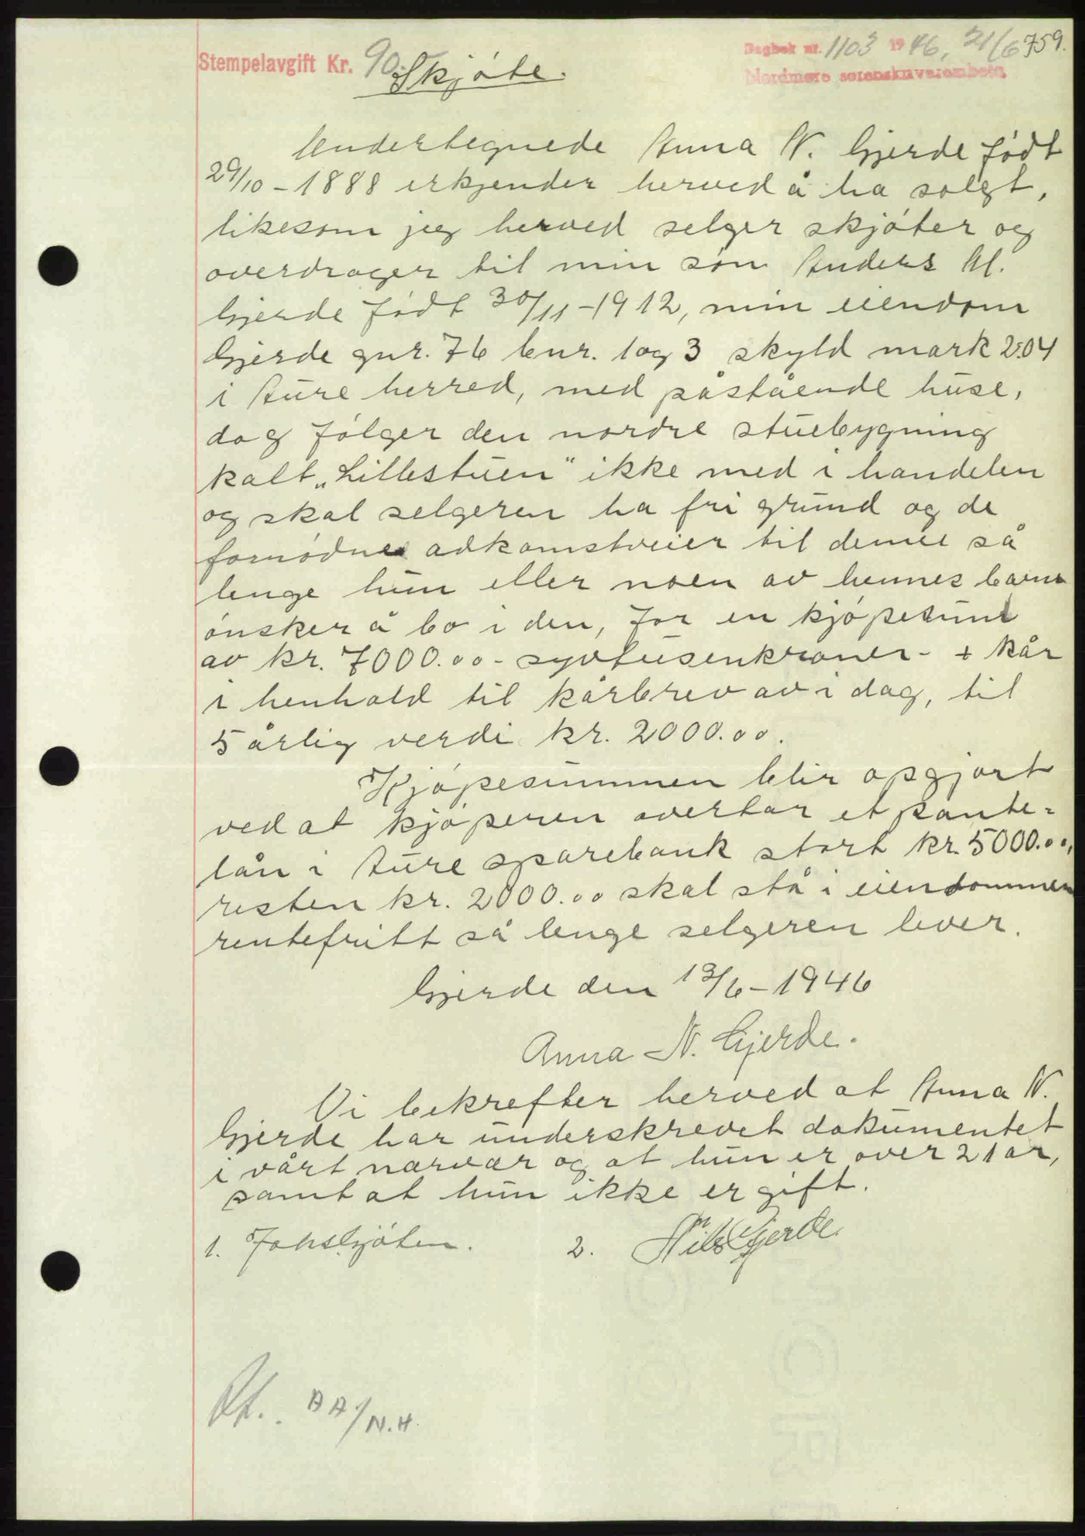 Stempelavgift Kr. 90.- Skjøte.
Dagbok nr. 1103 1946, 21/6 759.
Nordmøre sorenskriverembete
Undertegnede Anna N. Gjerde født
29/10 - 1888 erkjender herved å ha solgt,
likesom jeg herved selger skjøter og
overdrager til min søn Anders M.
Gjerde født 30/11 - 1912, min eiendom
Gjerde gnr. 76 bnr. 1 og 3 skyld mark 2.04
i Aure herred, med påstående huse,
dog følger den nordre stuebygning
kalt „Lillestuen" ikke med i handelen
og skal selgeren ha fri grund og de
fornødne adkomstveier til denne så
lenge hun eller noen av hennes barn
ønsker å bo i den, for en kjøpesum
av kr. 7000.00 - syvtusenkroner - + kår
i henhold til kårbrev av i dag, til
5 årlig verdi kr. 2000.00.
Kjøpesummen blir opgjort
ved at kjøperen overtar et pante-
lån i Aure sparebank stort kr. 5000.00,
resten kr. 2000.00 skal stå i eiendommen
rentefritt så lenge selgeren lever.
Gjerde den 13/6 - 1946
Anna N. Gjerde.
Vi bekrefter herved at Anna N.
Gjerde har underskrevet dokumentet
i vårt nærvær og at hun er over 21 år,
samt at hun ikke er gift.
1. 2. Nils Gjerde.
AA/N.H.